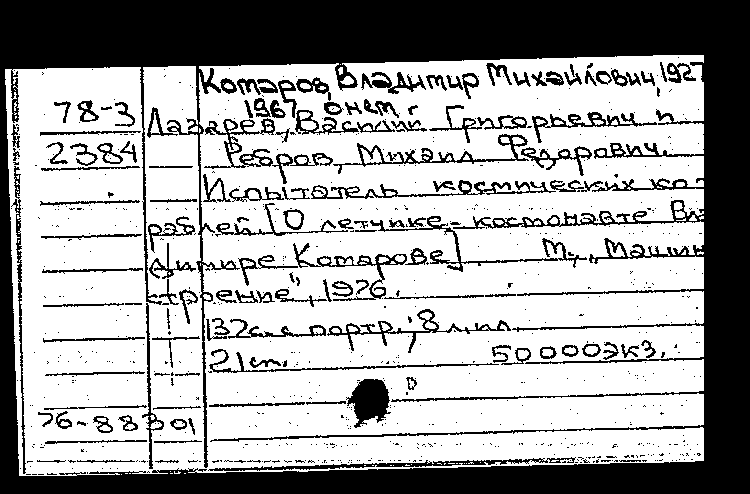 Комаров, Владимир Михайлович, 1927
1967, о нем.
78-3 Лазарев, Василий Григорьевич и
2384 Ребров, Михаил Федорович.
Испытатель космических ко-
раблей. [О летчике-космонавте Вла-
димире Комарове]. М., „Машино-
строение", 1976.
132 с. с портр.; 8 л. ил.
21 см. 50000 экз.
76-88301